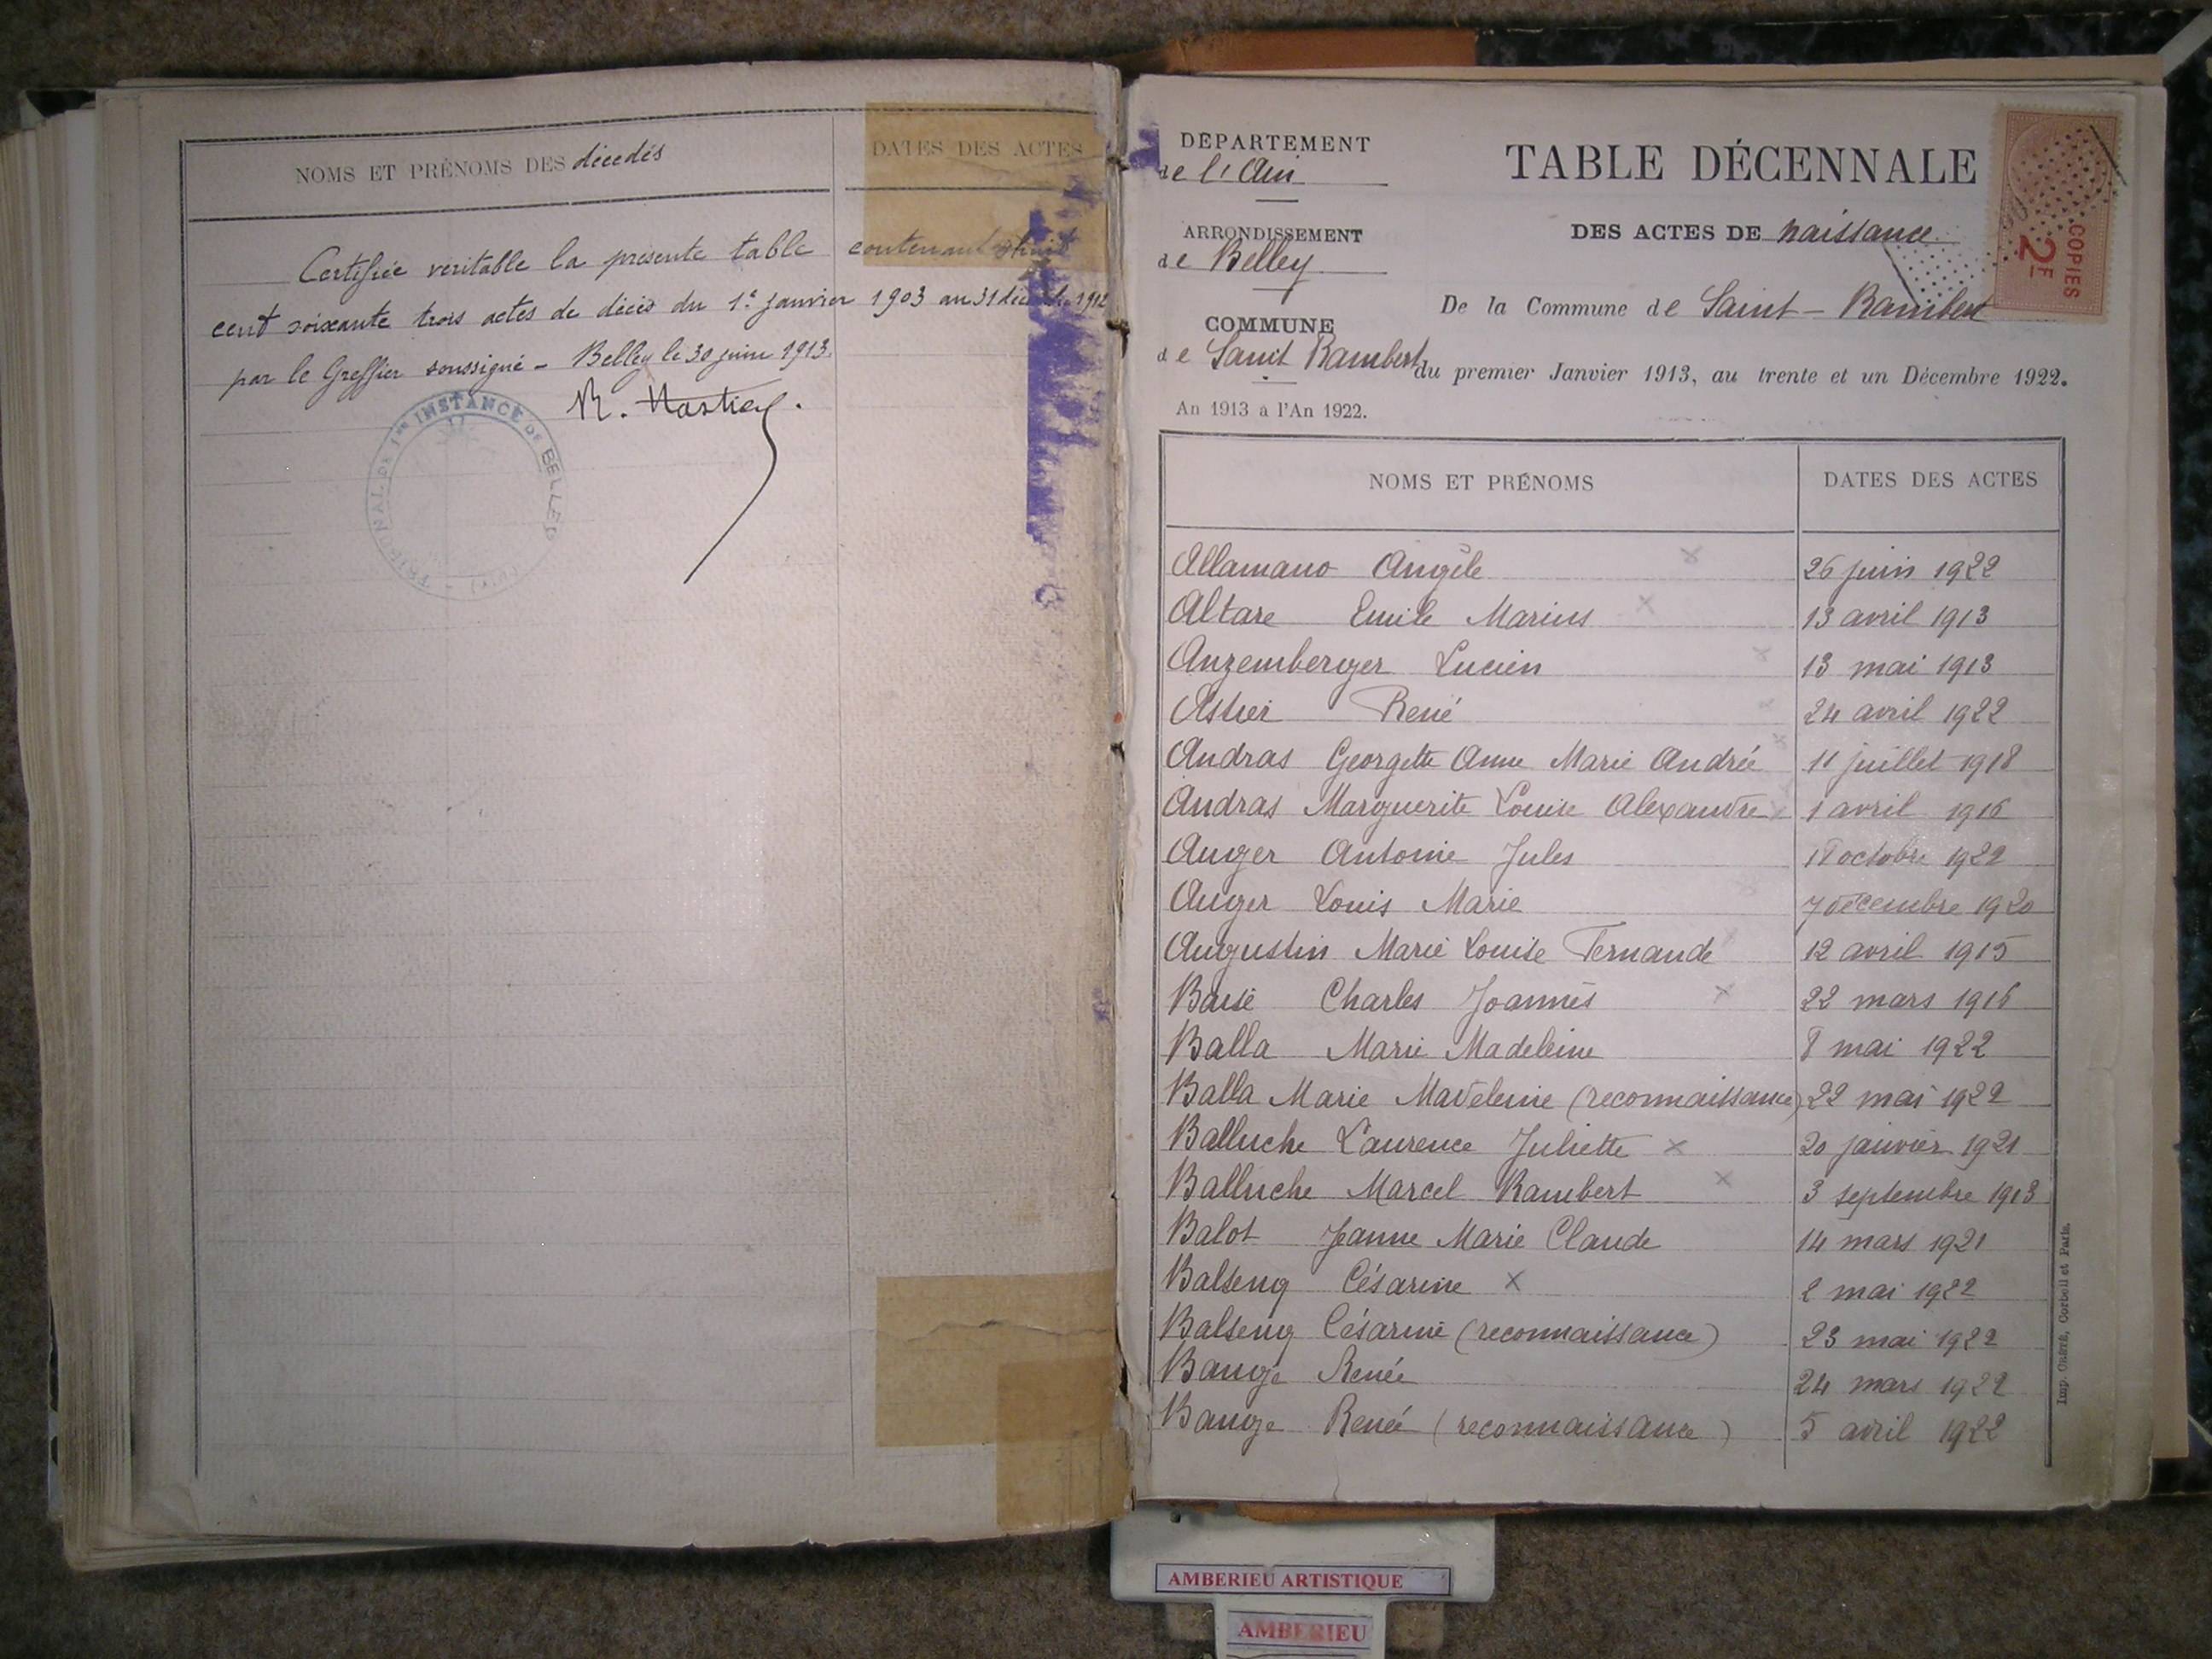 NOMS ET PRÉNOMS DES décédés
DATES DES ACTES
Certifiée veritable la présente table contenant huit
cent soixante trois actes de décès du 1er janvier 1903 au 31 décembre 1912
par le Greffier soussigné - Belley le 30 juin 1913.
TRIBUNAL DE 1re INSTANCE DE BELLEY (AIN)
DÉPARTEMENT
de l'Ain
ARRONDISSEMENT
de Belley
COMMUNE
de Saint Rambert
An 1913 à l'An 1922.
TABLE DÉCENNALE
DES ACTES DE naissance
De la Commune de Saint-Rambert
du premier Janvier 1913, au trente et un Décembre 1922.
COPIES
2F
NOMS ET PRÉNOMS DATES DES ACTES
Allamano Angèle x 26 juin 1922
Altare Emile Marius x 13 avril 1913
Anzemberger Lucien x 13 mai 1913
Astier René x 24 avril 1922
Audras Georgette Anne Marie Andrée x 11 juillet 1918
Audras Marguerite Louise Alexandre x 1 avril 1916
Auger Antoine Jules 18 octobre 1922
Auger Louis Marie 7 décembre 1920
Augustin Marie Louise Fernande 12 avril 1915
Charles Joannès x 22 mars 1916
Balla Marie Madeleine 8 mai 1922
Balla Marie Madeleine (reconnaissance) 22 mai 1922
Balluche Laurence Juliette x 20 janvier 1921
Balluche Marcel Rambert x 3 septembre 1913
Balot Jeanne Marie Claude 14 mars 1921
Balseng Césarine x 2 mai 1922
Balseng Césarine (reconnaissance) 23 mai 1922
Bauge Renée 24 mars 1922
Bauge Renée (reconnaissance) 5 avril 1922
Imp. CRÉTÉ, Corbeil et Paris.
AMBERIEU ARTISTIQUE
AMBERIEU